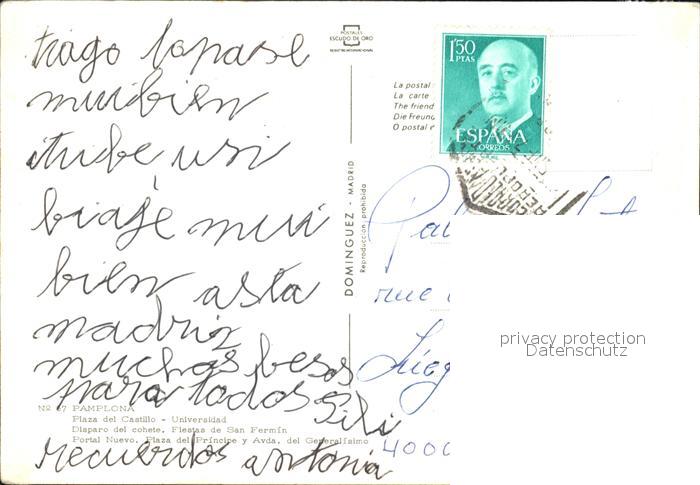 POSTALES
ESCUDO DE ORO
tiago lopase
muibien
itube, uri
biaje mui
bien asta
madriz
muchos besos
para todos Pili
recuerdos antonia
DOMINGUEZ - MADRID
Reproducción prohibida
Nº 67 PAMPLONA
Plaza del Castillo - Universidad
Disparo del cohete, Fiestas de San Fermín
Portal Nuevo, Plaza del Príncipe y Avda. del Generalísimo
1'50
PTAS
ESPAÑA
CORREOS
La postal
La carte
The friend
Die Freund
O postal e
rue
Liég
4000
privacy protection
Datenschutz